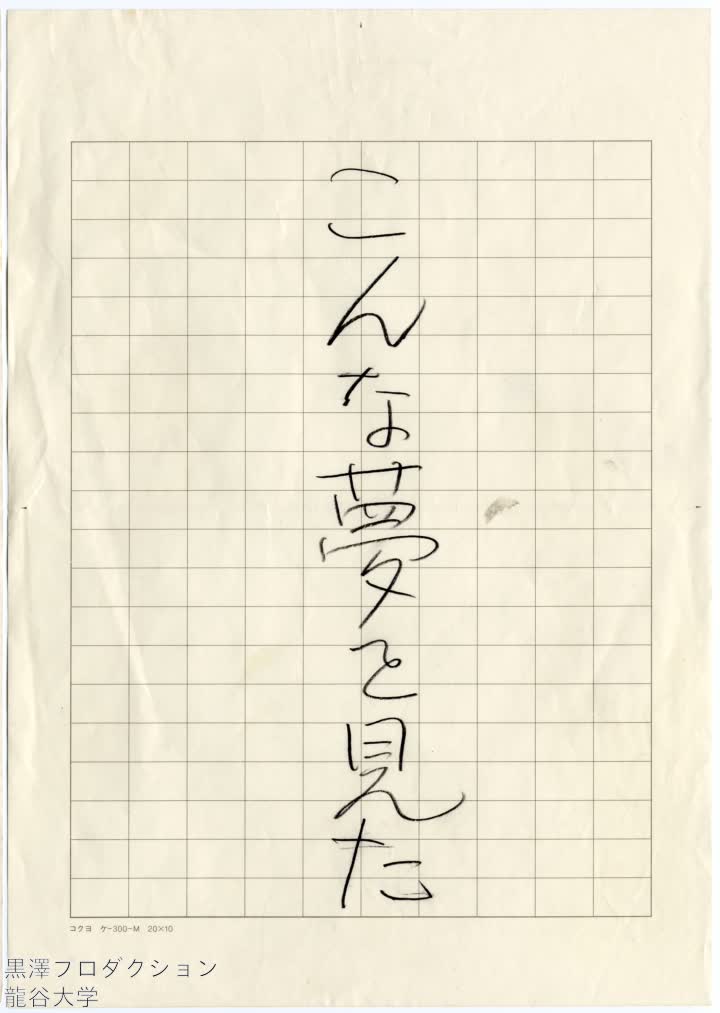 こんな夢を見た
コクヨ ケ-300-M 20×10
黒澤プロダクション
龍谷大学